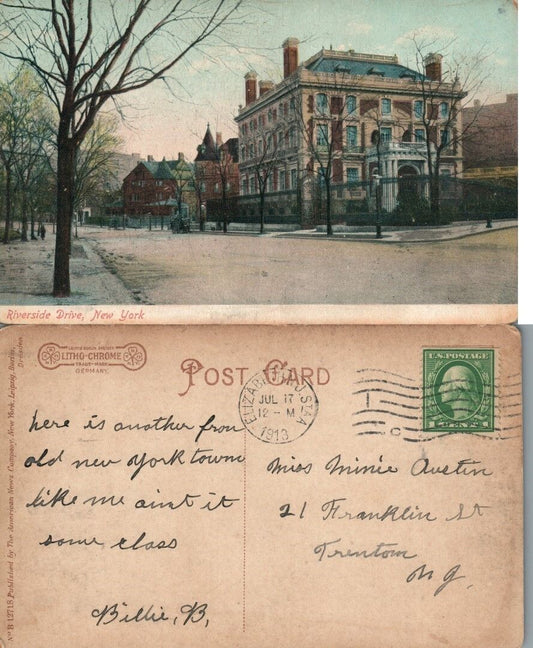 Riverside Drive, New York
LITHO-CHROME
TRADE MARK
GERMANY.
POST CARD
ELIZABETH, N.J. STA
JUL 17
12 - M
1913
U.S. POSTAGE
here is another from
old new york town
like me aint it
some class
Billie, B,
Miss Minie Austin
21 Franklin St
Trentom
NJ
No B 12718 Published by The American News Company, New York, Leipzig, Berlin,
Dresden.